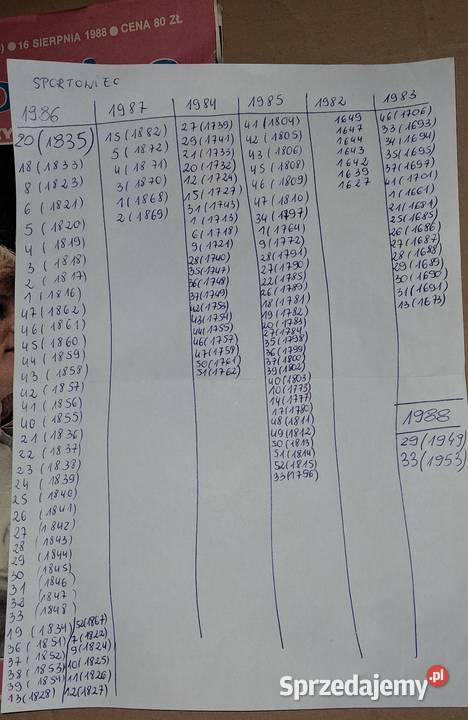 ● 16 SIERPNIA 1988 ● CENA 80 ZŁ
SPORTOWIEC
1986
20 (1835)
18 (1833)
8 (1823)
6 (1821)
5 (1820)
4 (1819)
3 (1818)
2 (1817)
1 (1816)
47 (1862)
46 (1861)
45 (1860)
44 (1859)
43 (1858)
42 (1857)
41 (1856)
40 (1855)
21 (1836)
22 (1837)
23 (1838)
24 (1839)
25 (1840)
26 (1841)
27 (1842)
28 (1843)
29 (1844)
30 (1845)
31 (1846)
32 (1847)
33 (1848)
19 (1834)
36 (1851)
37 (1852)
38 (1853)
39 (1854)
13 (1828)
52 (1867)
7 (1822)
9 (1824)
10 (1825)
11 (1826)
12 (1827)
1987
15 (1882)
5 (1872)
4 (1871)
3 (1870)
1 (1868)
2 (1869)
1984
27 (1739)
29 (1741)
21 (1733)
20 (1732)
12 (1724)
15 (1727)
31 (1743)
1 (1713)
6 (1718)
9 (1721)
28 (1740)
35 (1747)
36 (1748)
37 (1749)
42 (1753)
43 (1754)
44 (1755)
46 (1757)
47 (1758)
50 (1761)
51 (1762)
1985
41 (1804)
42 (1805)
43 (1806)
45 (1808)
46 (1809)
47 (1810)
34 (1797)
1 (1764)
9 (1772)
28 (1791)
27 (1790)
22 (1785)
26 (1789)
18 (1781)
19 (1782)
20 (1783)
27 (1784)
35 (1798)
36 (1799)
37 (1800)
39 (1802)
40 (1803)
10 (1773)
14 (1777)
17 (1780)
48 (1811)
49 (1812)
50 (1813)
51 (1814)
52 (1815)
33 (1796)
1982
1649
1647
1644
1643
1642
1639
1627
1983
46 (1706)
33 (1693)
34 (1694)
35 (1695)
37 (1697)
41 (1701)
1 (1661)
21 (1681)
25 (1685)
26 (1686)
27 (1687)
28 (1688)
29 (1689)
30 (1690)
31 (1691)
13 (1673)
1988
29 (1949)
33 (1953)
Sprzedajemy.pl